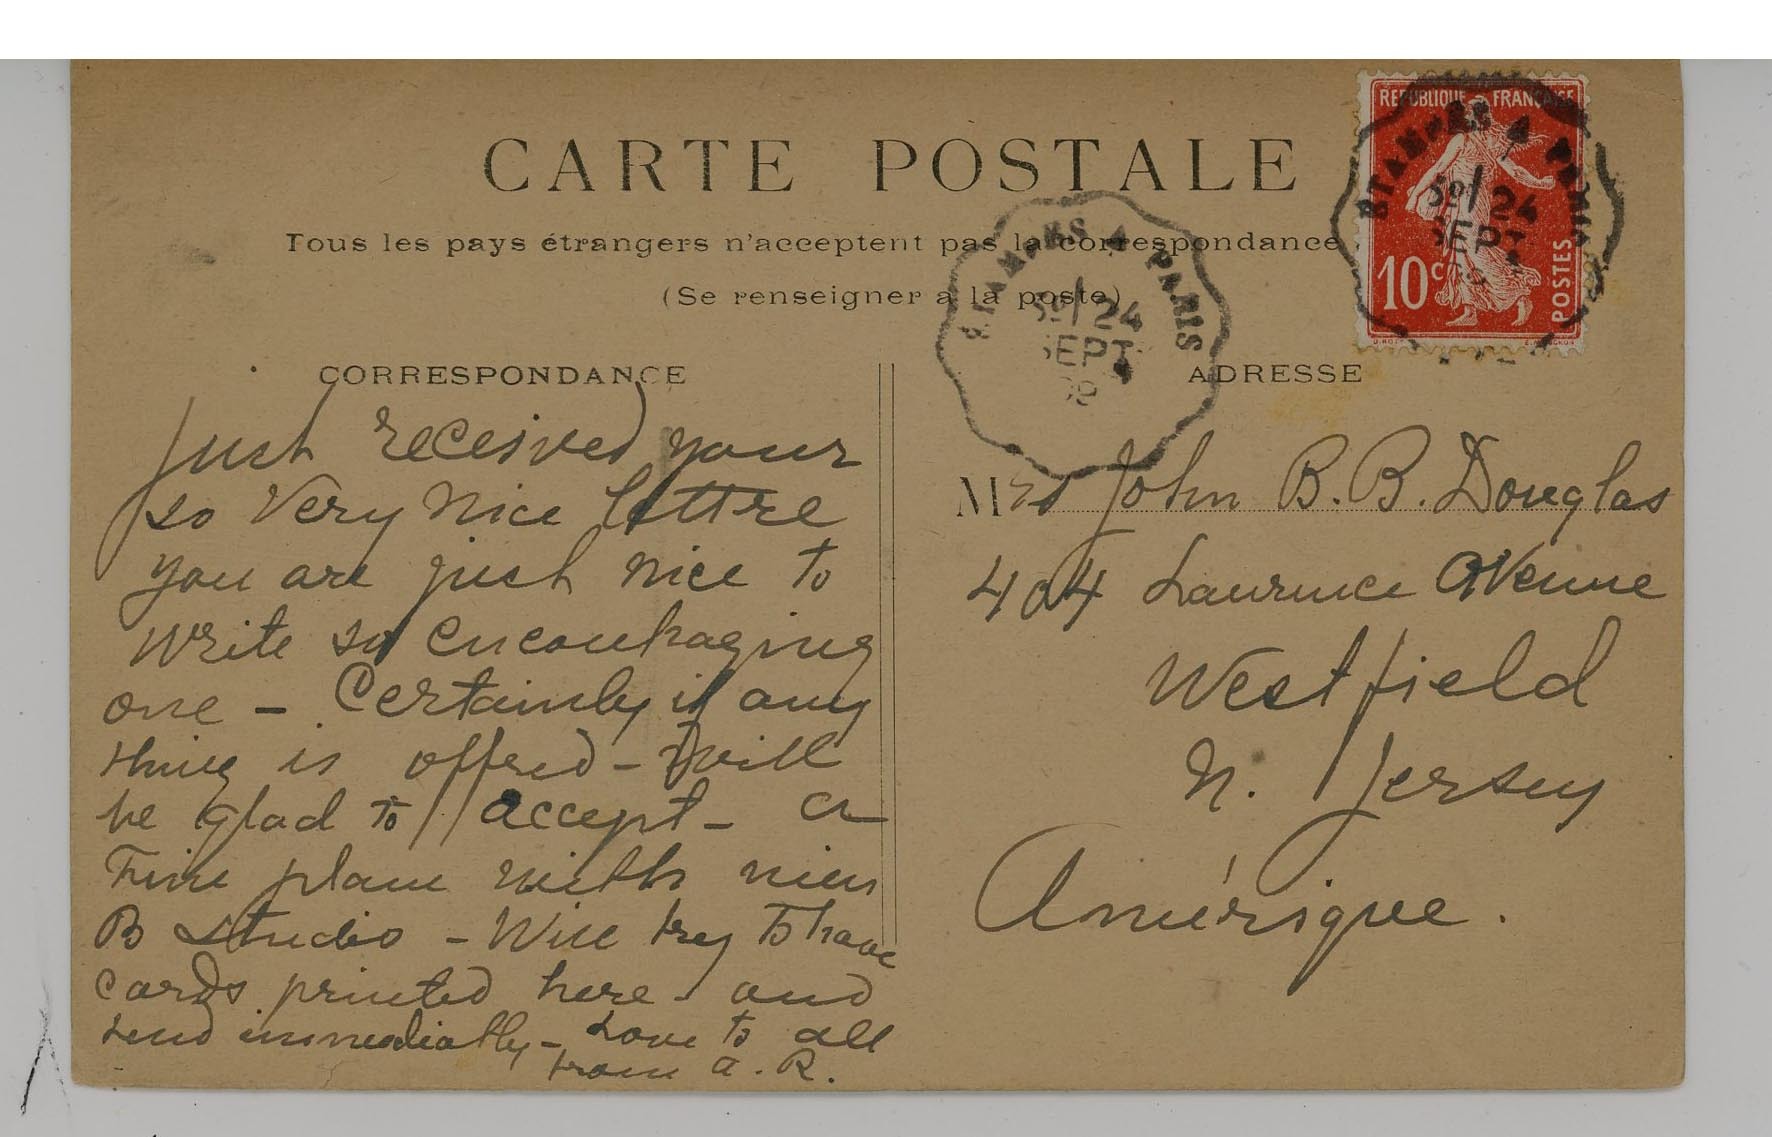 REPUBLIQUE FRANÇAISE
10c
POSTES
CARTE POSTALE
Tous les pays étrangers n'acceptent pas la correspondance
(Se renseigner a la poste)
ETAMPES A PARIS
24
SEPT
ETAMPES A PARIS
24
SEPT
CORRESPONDANCE
Just received your
so very nice lettre
you are just nice to
write so encouraging
one - Certainly if any
thing is offred - Will
be glad to accept - a
Fine plan with
B Studio - Will try to have
cards printed here - and
send immediatly - Love to all
from A. R.
ADRESSE
Mrs John B. B. Douglas
404 Laurence Avenue
Westfield
N. Jersey
Amérique.